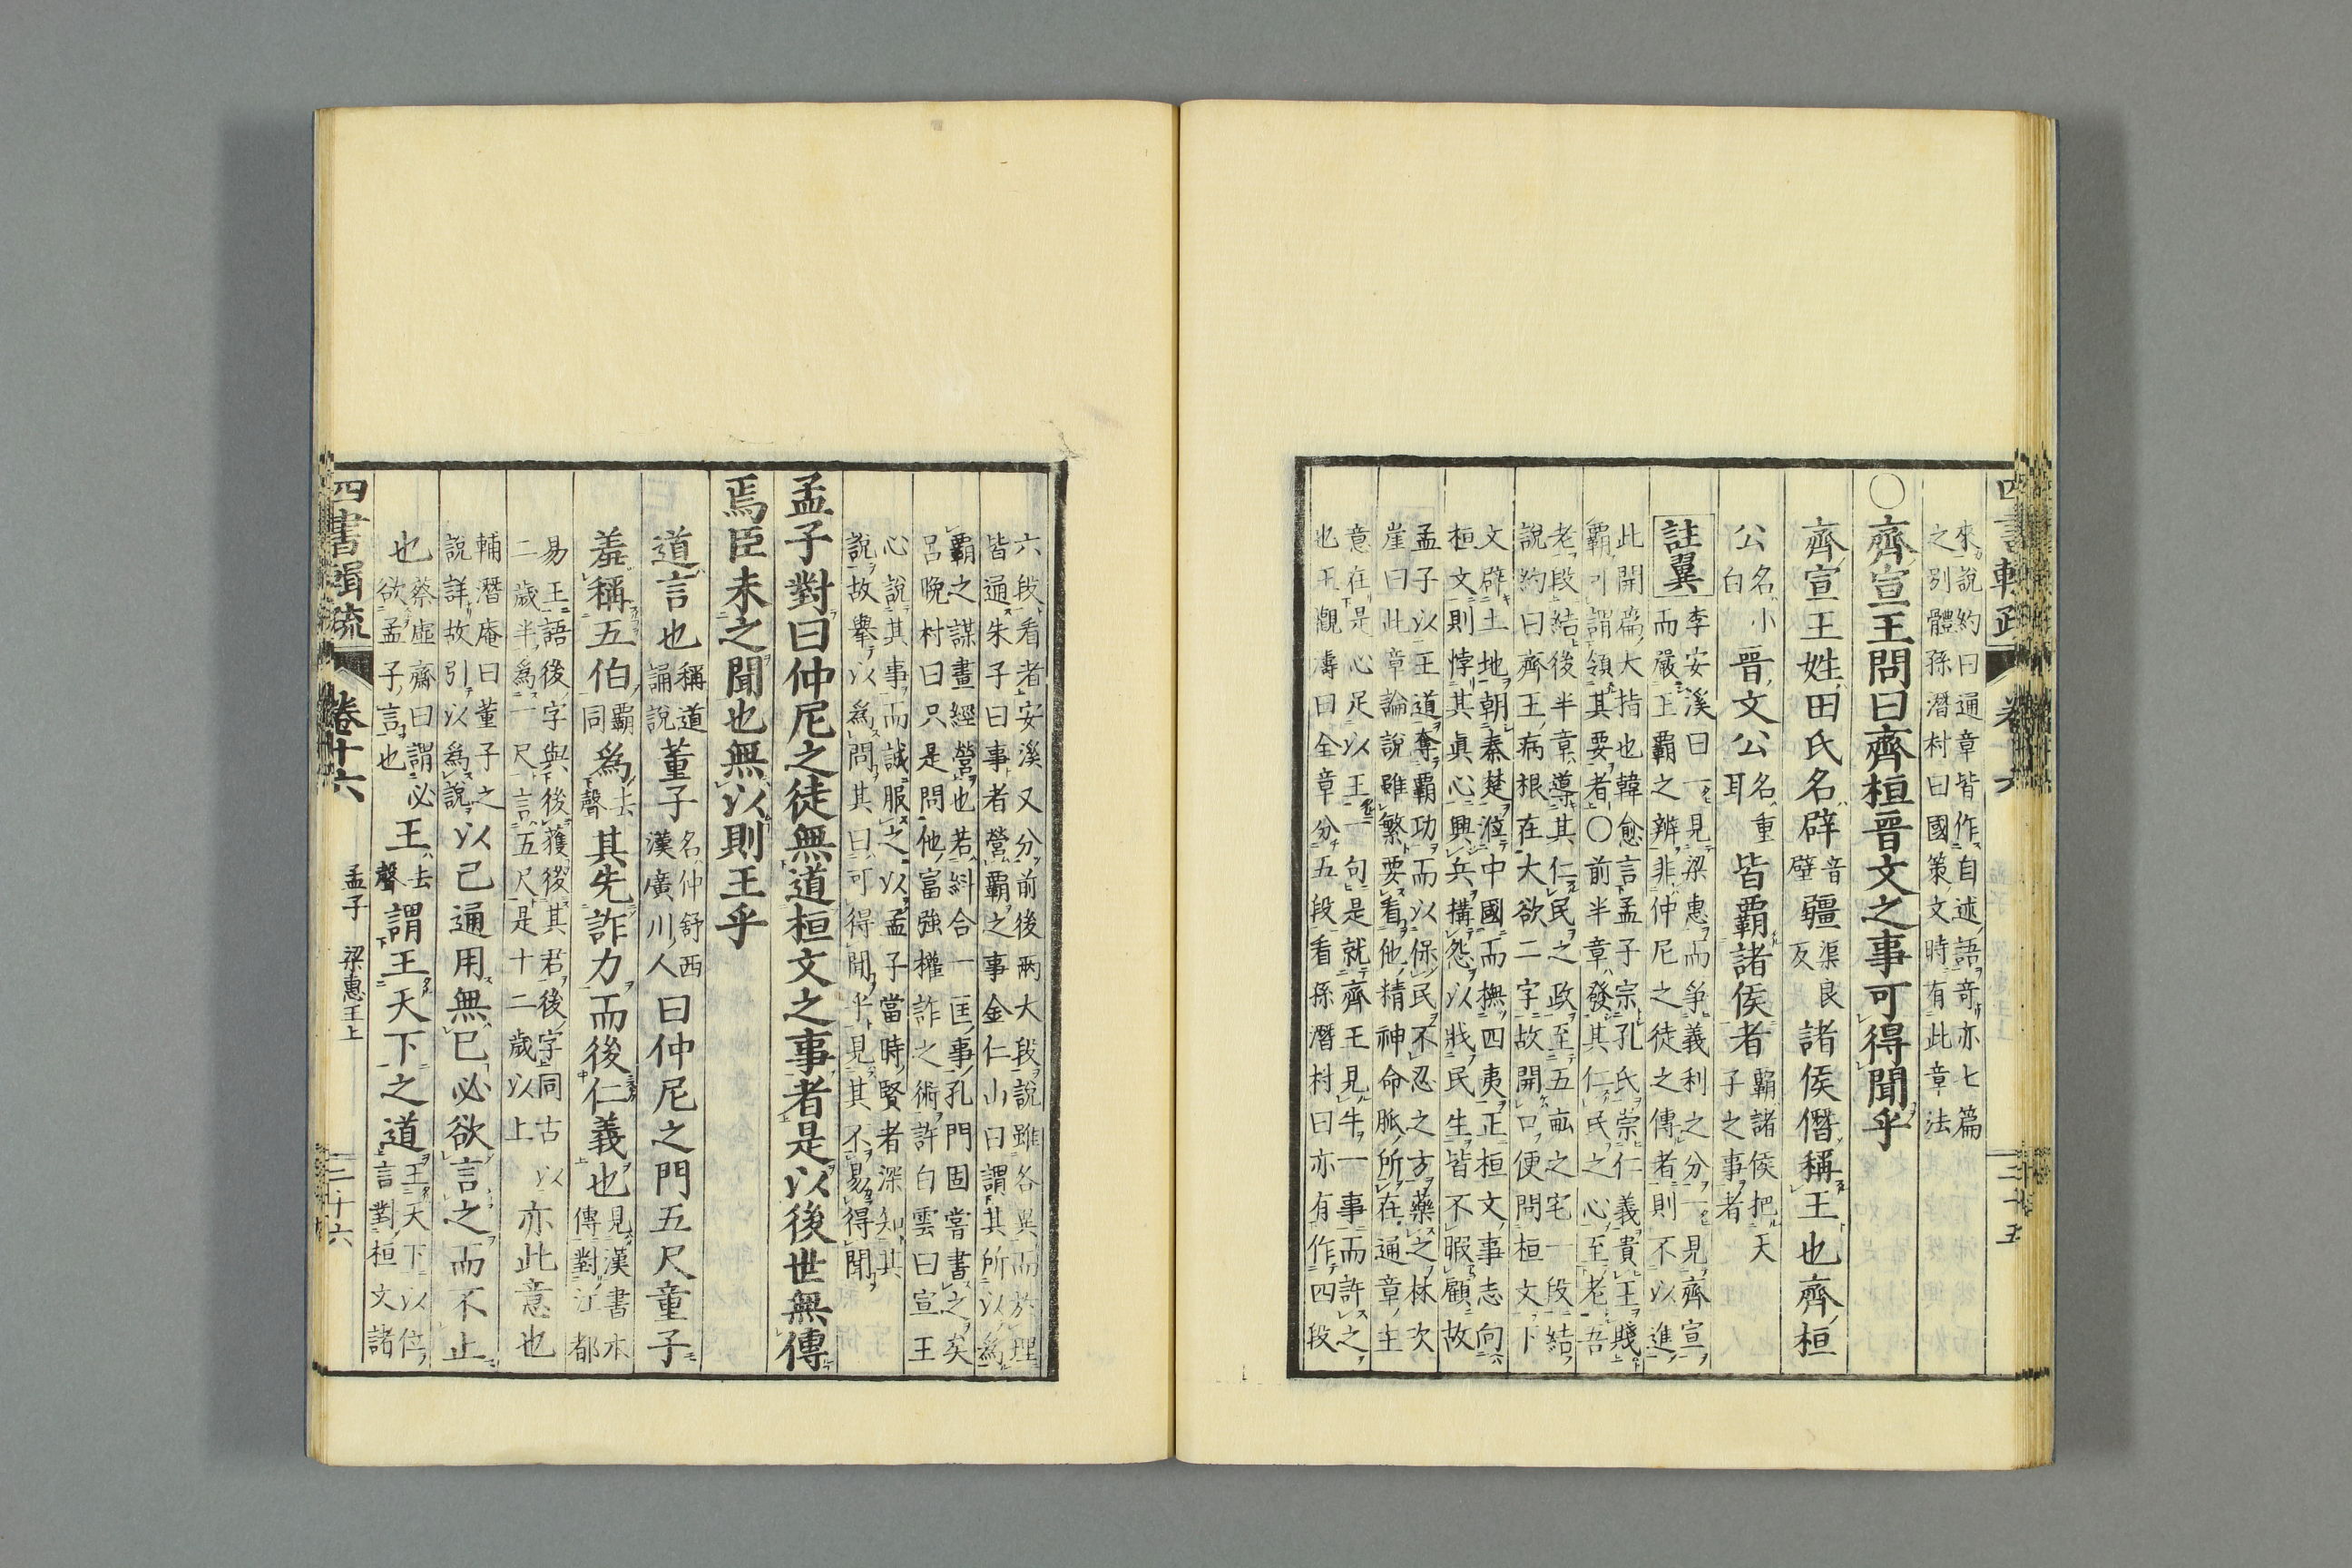 來說約曰通章皆作自述語奇亦七篇
之別體孫潛村曰國策文時有此章法
○齊宣王問曰齊桓晉文之事可得聞乎
齊宣王姓田氏名辟音璧疆渠良反諸侯僭稱王也齊桓
公名小白晉文公名重耳皆霸諸侯者霸諸侯把天子之事者
註翼李安溪曰一見梁惠而爭義利之分一見齊宣
而嚴王霸之辨非仲尼之徒之傳者則不以進
此開篇大指也韓愈言孟子宗孔氏崇仁義貴王賤
霸可謂領其要者○前半章發其仁民之心至老吾
老段結後半章導其仁民之政至五畝之宅一段結
說約曰齊王病根在大欲二字故開口便問桓文下
文辟土地朝秦楚涖中國而撫四夷正桓文事志向
桓文則悖其眞心興兵構怨以戕民生皆不暇顧故
孟子以王道奪霸功而以保民不忍之方藥之林次
崖曰此章論說雖繁要看他精神命脈所在通章主
意在是心足以王一句是就齊王見牛一事而許之
也爪觀濤曰全章分五段看孫潛村曰亦有作四段
六段看者安溪又分前後兩大段說雖各異而於理
皆通朱子曰事者營霸之事金仁山曰謂其所以爲
霸之謀畫經營也若糾合一匡事孔門固嘗書之矣
呂晩村曰只是問他富強權詐之術許白雲曰宣王
心說其事而誠服之以孟子當時賢者深知其
說故擧以爲問其曰可得聞乎見其不易得聞
孟子對曰仲尼之徒無道桓文之事者是以後世無傳
焉臣未之聞也無以則王乎
道言也稱道誦說董子名仲舒西漢廣川人曰仲尼之門五尺童子
羞稱五伯霸同爲去聲其先詐力而後仁義也見漢書本傳對江都
易王語後字與後獲後其君後字同古以
二歲半爲一尺言五尺是十二歲以上亦此意也
輔潛庵曰董子之
說詳故引以爲說以已通用無已必欲言之而不止
也蔡虛齋曰謂必欲孟子言也王去聲謂王天下之道王天下以位言對桓文諸
四書輯疏 卷十六 孟子 梁惠王上 二十六